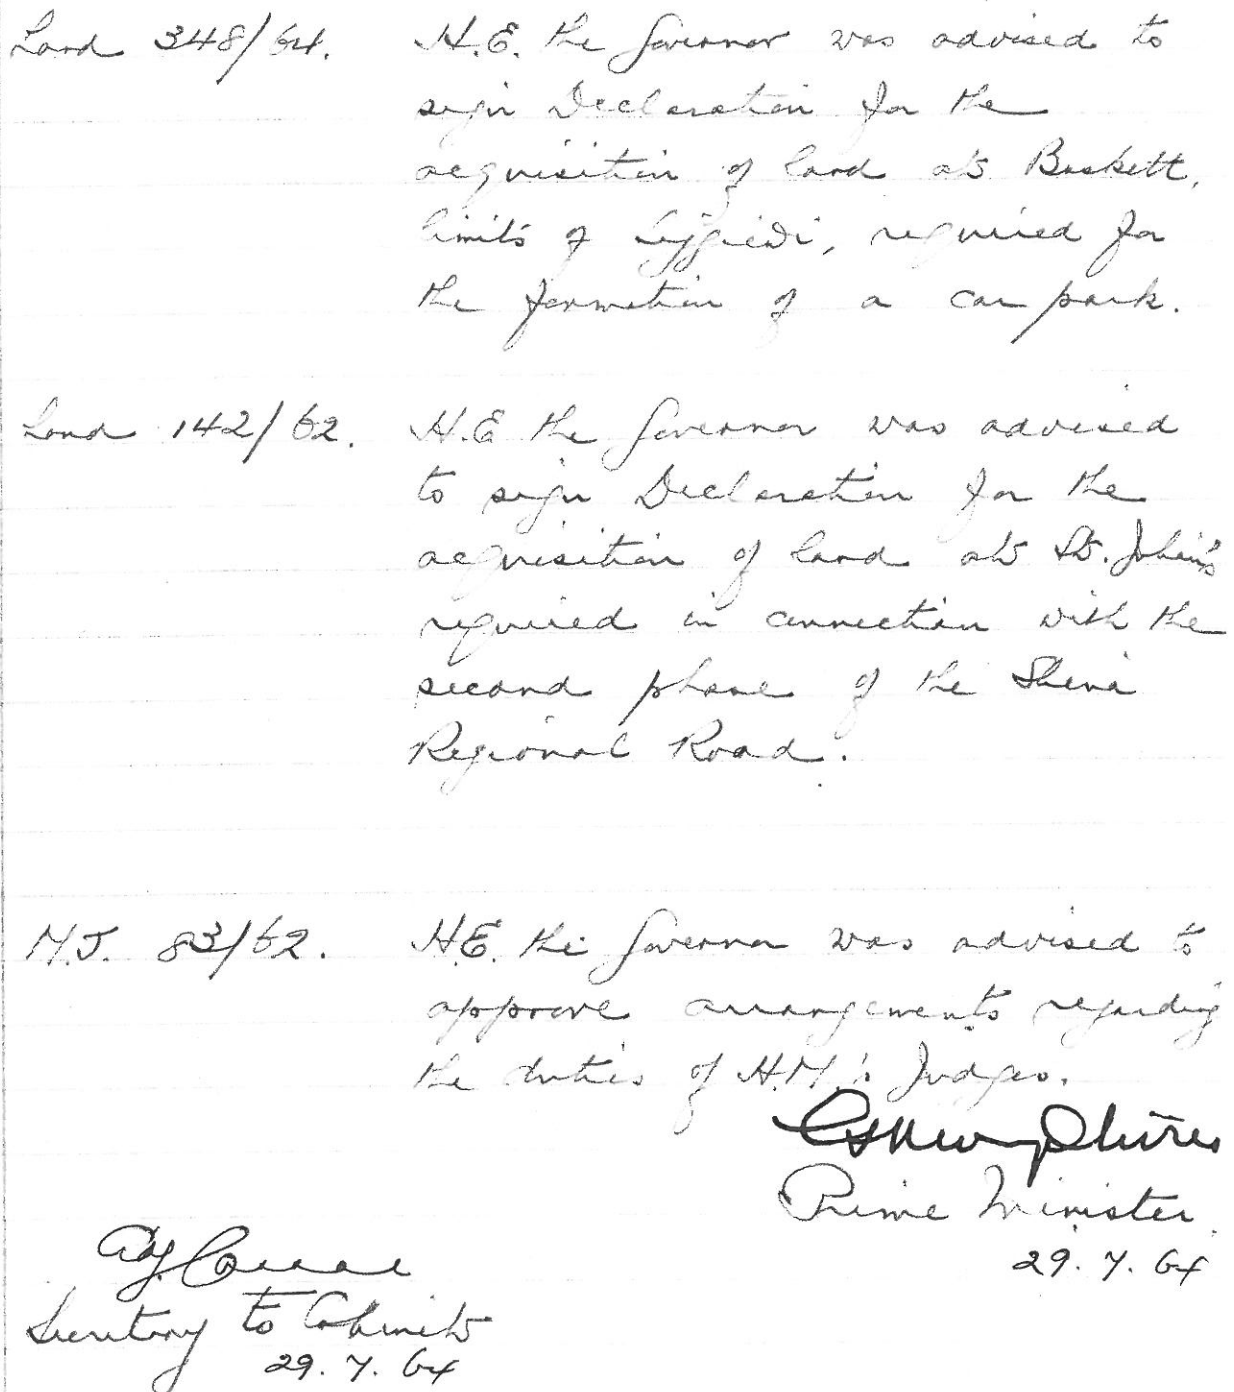 Land 348/64. H.E. the Governor was advised to
sign Declaration for the
acquisition of land at Buskett,
limits of Siġġiewi, required for
the formation of a car park.
Land 142/62. H.E the Governor was advised
to sign Declaration for the
acquisition of land at St. John's
required in connection with the
second phase of the
Regional Road.
M.J. 83/62. H.E. the Governor was advised to
approve arrangements regarding
the duties of H.M.'s Judges.
Prime Minister.
29.7.64
Secretary to Cabinet
29.7.64